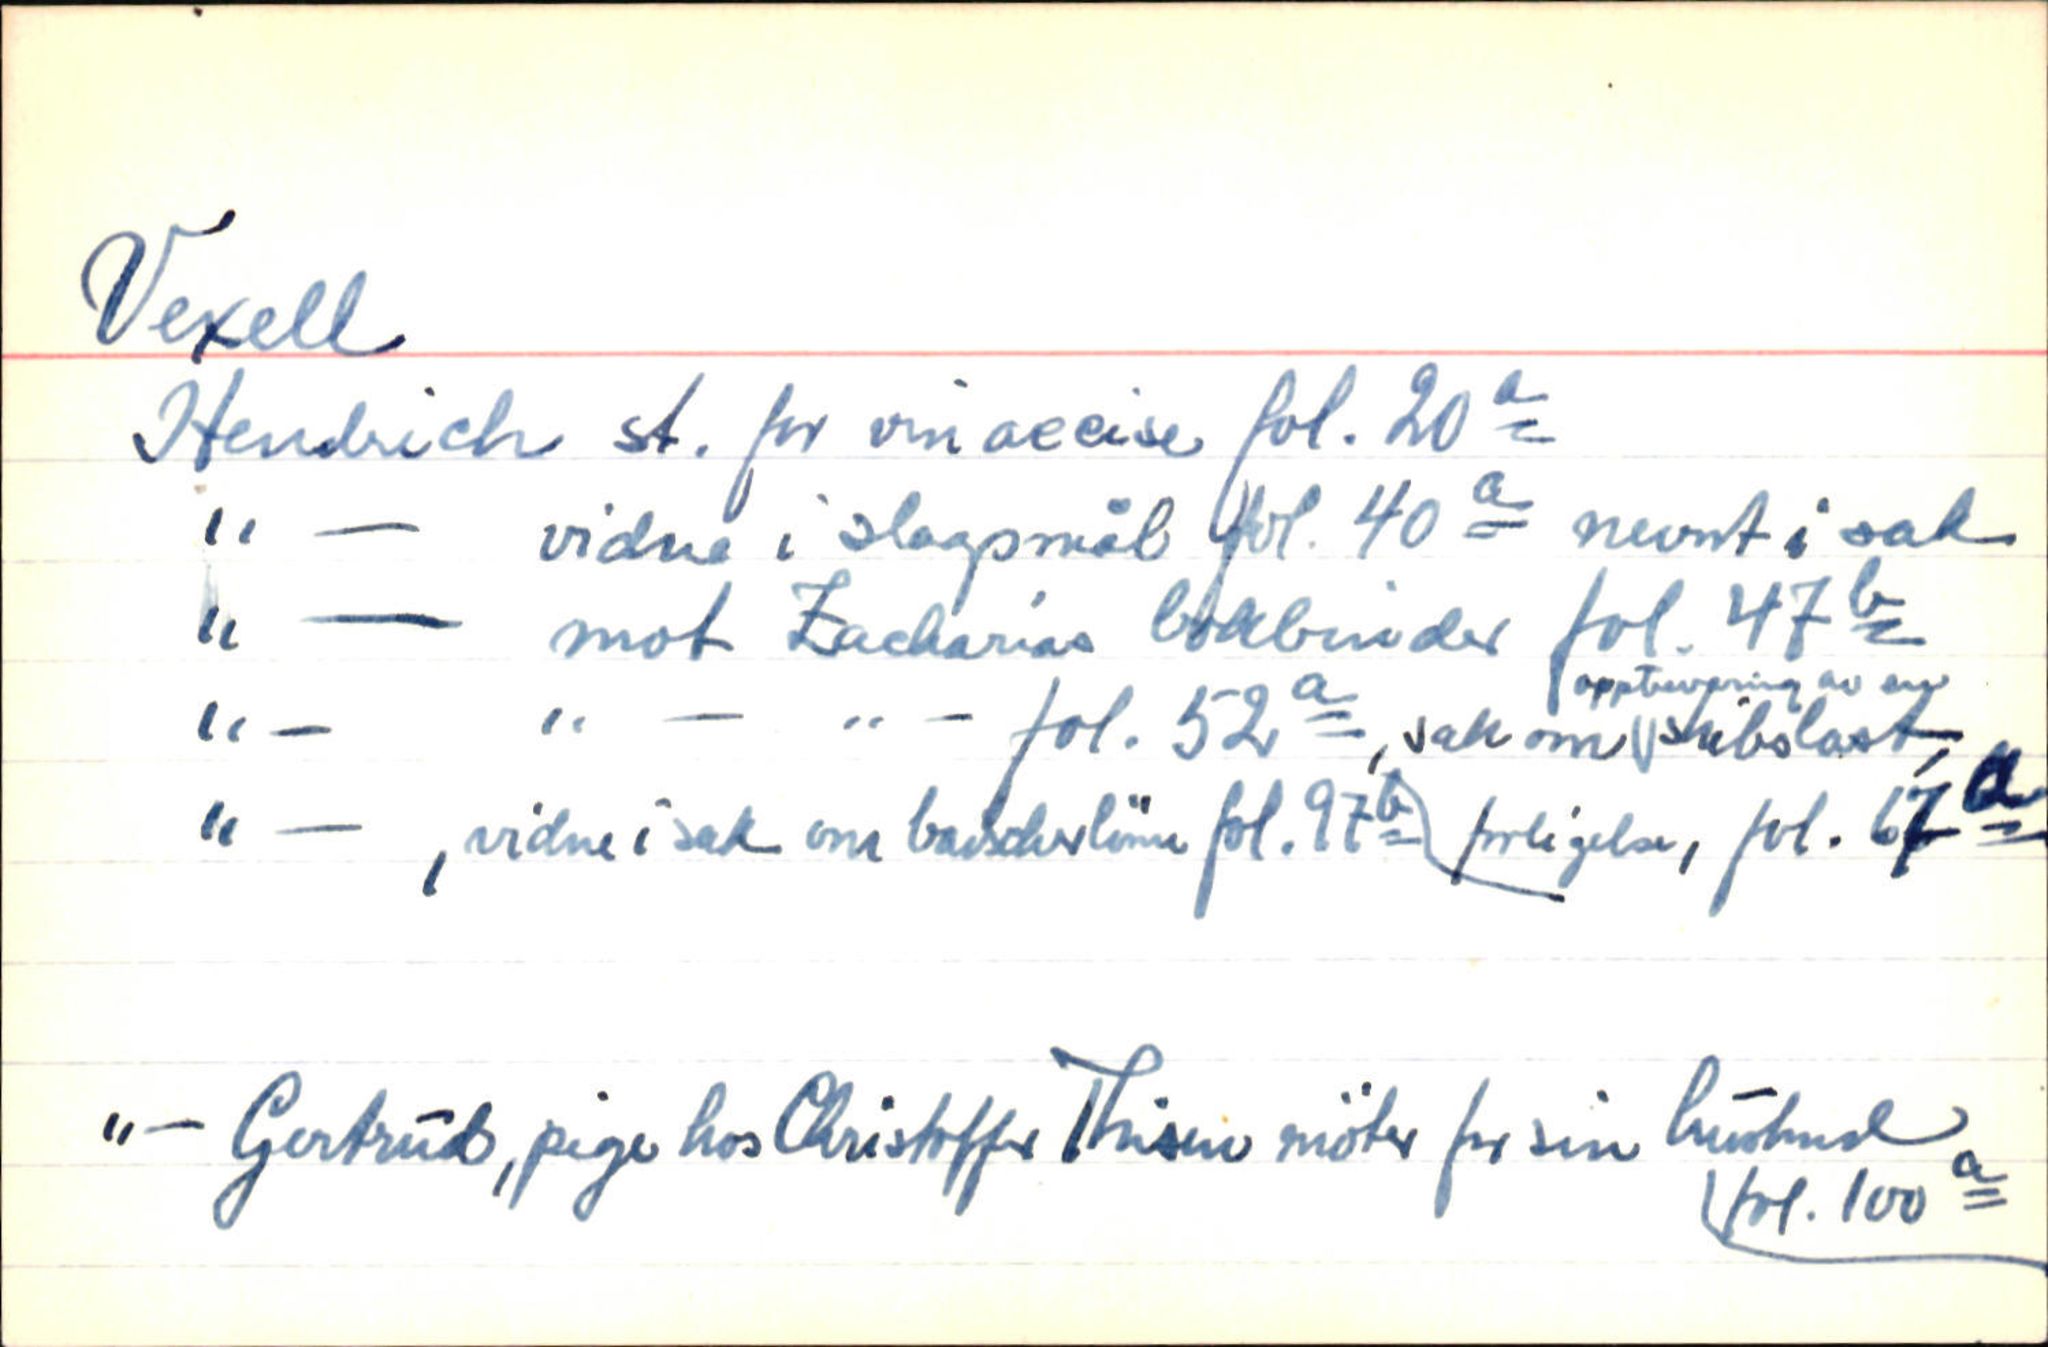 Vexell
Hendrich st. for vinaccise fol. 20 a
" — vidne i slagsmål fol. 40 a nevnt i sak
" — mot Zacharias bokbinder fol. 47 b
" — " — " — fol. 52 a, sak om opptrevning av en skibslast,
" — , vidne i sak om fol. 97 b forligelse, fol. 67 a
" — Gertrud, pige hos Christoffer Thisen möter for sin husbond
fol. 100 a